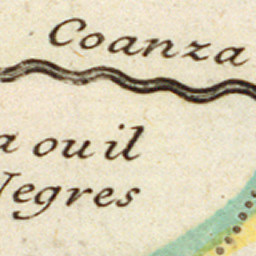 Coanza
a ou il
Negres